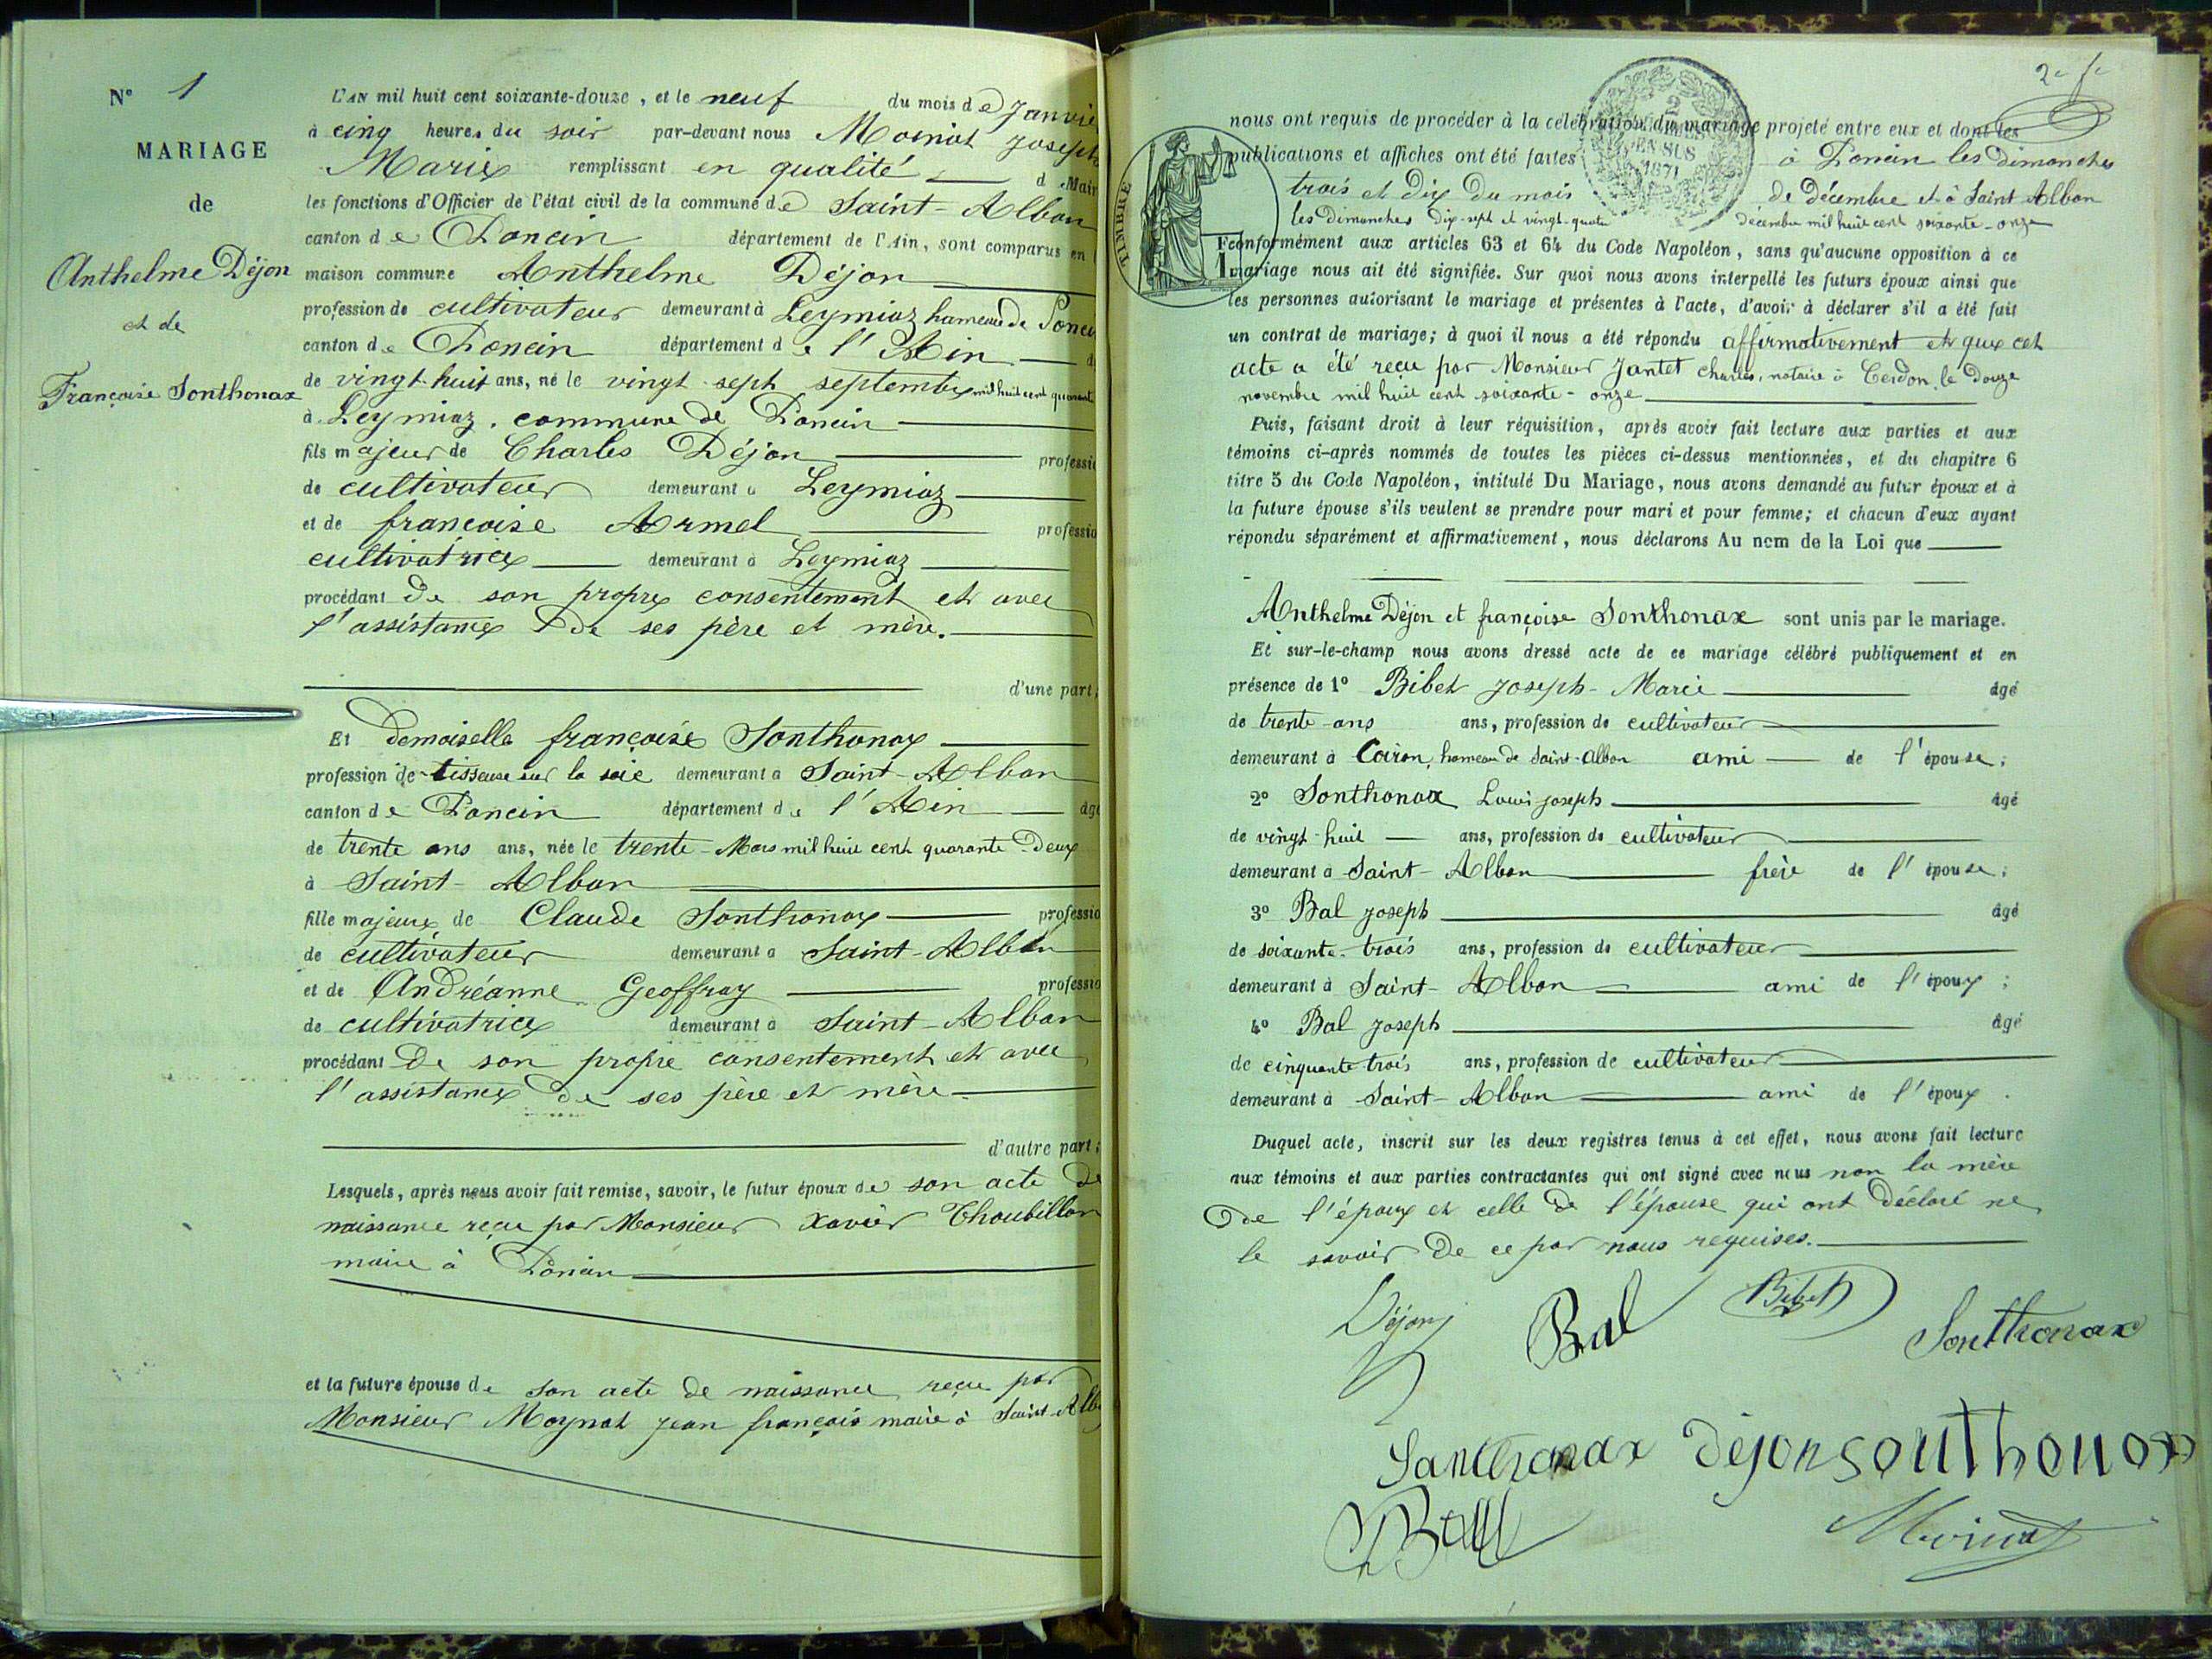 N° 1
MARIAGE
de
Anthelme Déjon
et de
Françoise Sonthonax
L'AN mil huit cent soixante-douze, et le neuf du mois de Janvie
à cinq heures du soir par-devant nous Moinat Joseph
Marie remplissant en qualité de Mair
les fonctions d'Officier de l'état civil de la commune de Saint-Alban
canton de Poncin département de l'Ain, sont comparus en
maison commune Anthelme Déjon
profession de cultivateur demeurant à Leymiaz hameau de Ponci
canton de Poncin département de l'Ain
de vingt-huit ans, né le vingt-sept septembre mil huit cent quarante
à Leymiaz, commune de Poncin
fils majeur de Charles Déjon professi
de cultivateur demeurant à Leymiaz
et de françoise Armel professio
cultivatrice demeurant à Leymiaz
procédant de son propre consentement et avec
l'assistance de ses père et mère.
d'une part;
Et demoiselle françoise Sonthonax
profession de tisseuse sur la soie demeurant à Saint-Alban
canton de Poncin département de l'Ain âgé
de trente ans ans, née le trente-Mars mil huit cent quarante-deux
à Saint-Alban
fille majeure de Claude Sonthonax professio
de cultivateur demeurant à Saint-Alban
et de Andréanne Geoffray professio
de cultivatrice demeurant à Saint-Alban
procédant de son propre consentement et avec
l'assistance de ses père et mère
d'autre part;
Lesquels, après nous avoir fait remise, savoir, le futur époux de son acte de
naissance reçu par Monsieur Xavier Thoubillon
maire à Poncin
et la future épouse de son acte de naissance reçu par
Monsieur Moynat Jean françois maire à Saint-Alb
2e fe
2
EN SUS
1871
TIMBRE
nous ont requis de procéder à la célébration du mariage projeté entre eux et dont les
publications et affiches ont été faites à Poncin les dimanches
trois et dix du mois de décembre et à Saint Alban
les dimanches dix-sept et vingt-quatre décembre mil huit cent soixante-onze
conformément aux articles 63 et 64 du Code Napoléon, sans qu'aucune opposition à ce
mariage nous ait été signifiée. Sur quoi nous avons interpellé les futurs époux ainsi que
les personnes autorisant le mariage et présentes à l'acte, d'avoir à déclarer s'il a été fait
un contrat de mariage; à quoi il nous a été répondu affirmativement et que cet
acte a été reçu par Monsieur Jantet charles, notaire à Cerdon, le douze
novembre mil huit cent soixante-onze
Puis, faisant droit à leur réquisition, après avoir fait lecture aux parties et aux
témoins ci-après nommés de toutes les pièces ci-dessus mentionnées, et du chapitre 6
titre 5 du Code Napoléon, intitulé Du Mariage, nous avons demandé au futur époux et à
la future épouse s'ils veulent se prendre pour mari et pour femme; et chacun d'eux ayant
répondu séparément et affirmativement, nous déclarons Au nom de la Loi que
Anthelme Déjon et françoise Sonthonax sont unis par le mariage.
Et sur-le-champ nous avons dressé acte de ce mariage célébré publiquement et en
présence de 1° Bibet Joseph-Marie âgé
de trente-ans ans, profession de cultivateur
demeurant à Coiron, hameau de Saint-Alban ami de l'épouse;
2° Sonthonax Louis joseph âgé
de vingt-huit ans, profession de cultivateur
demeurant à Saint-Alban frère de l'épouse;
3° Bal joseph âgé
de soixante-trois ans, profession de cultivateur
demeurant à Saint-Alban ami de l'époux;
4° Bal joseph âgé
de cinquante-trois ans, profession de cultivateur
demeurant à Saint-Alban ami de l'époux.
Duquel acte, inscrit sur les deux registres tenus à cet effet, nous avons fait lecture
aux témoins et aux parties contractantes qui ont signé avec nous non la mère
de l'époux et celle de l'épouse qui ont déclaré ne
le savoir de ce par nous requises.
Déjon Bal Bibet Sonthonax
Sonthonax Déjon Sonthonox
Ball Moinat